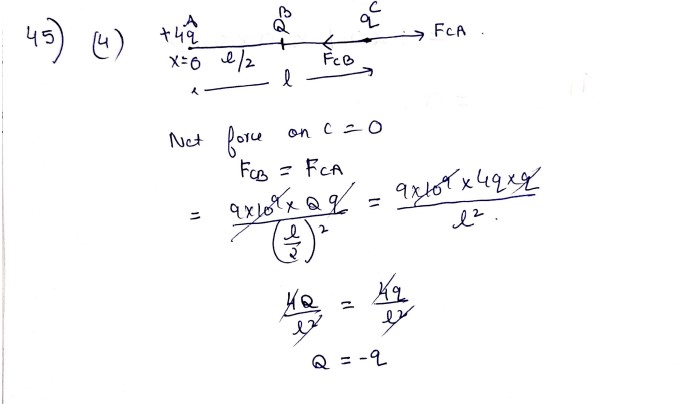 45) (4)
A B C
+4q Q q FCA .
x=0 l/2 FCB
l
Net force on C = 0
FCB = FCA
= 9×10⁹× Q q / (l/2)² = 9×10⁹ × 4q × q / l² .
4Q / l² = 4q / l²
Q = -q